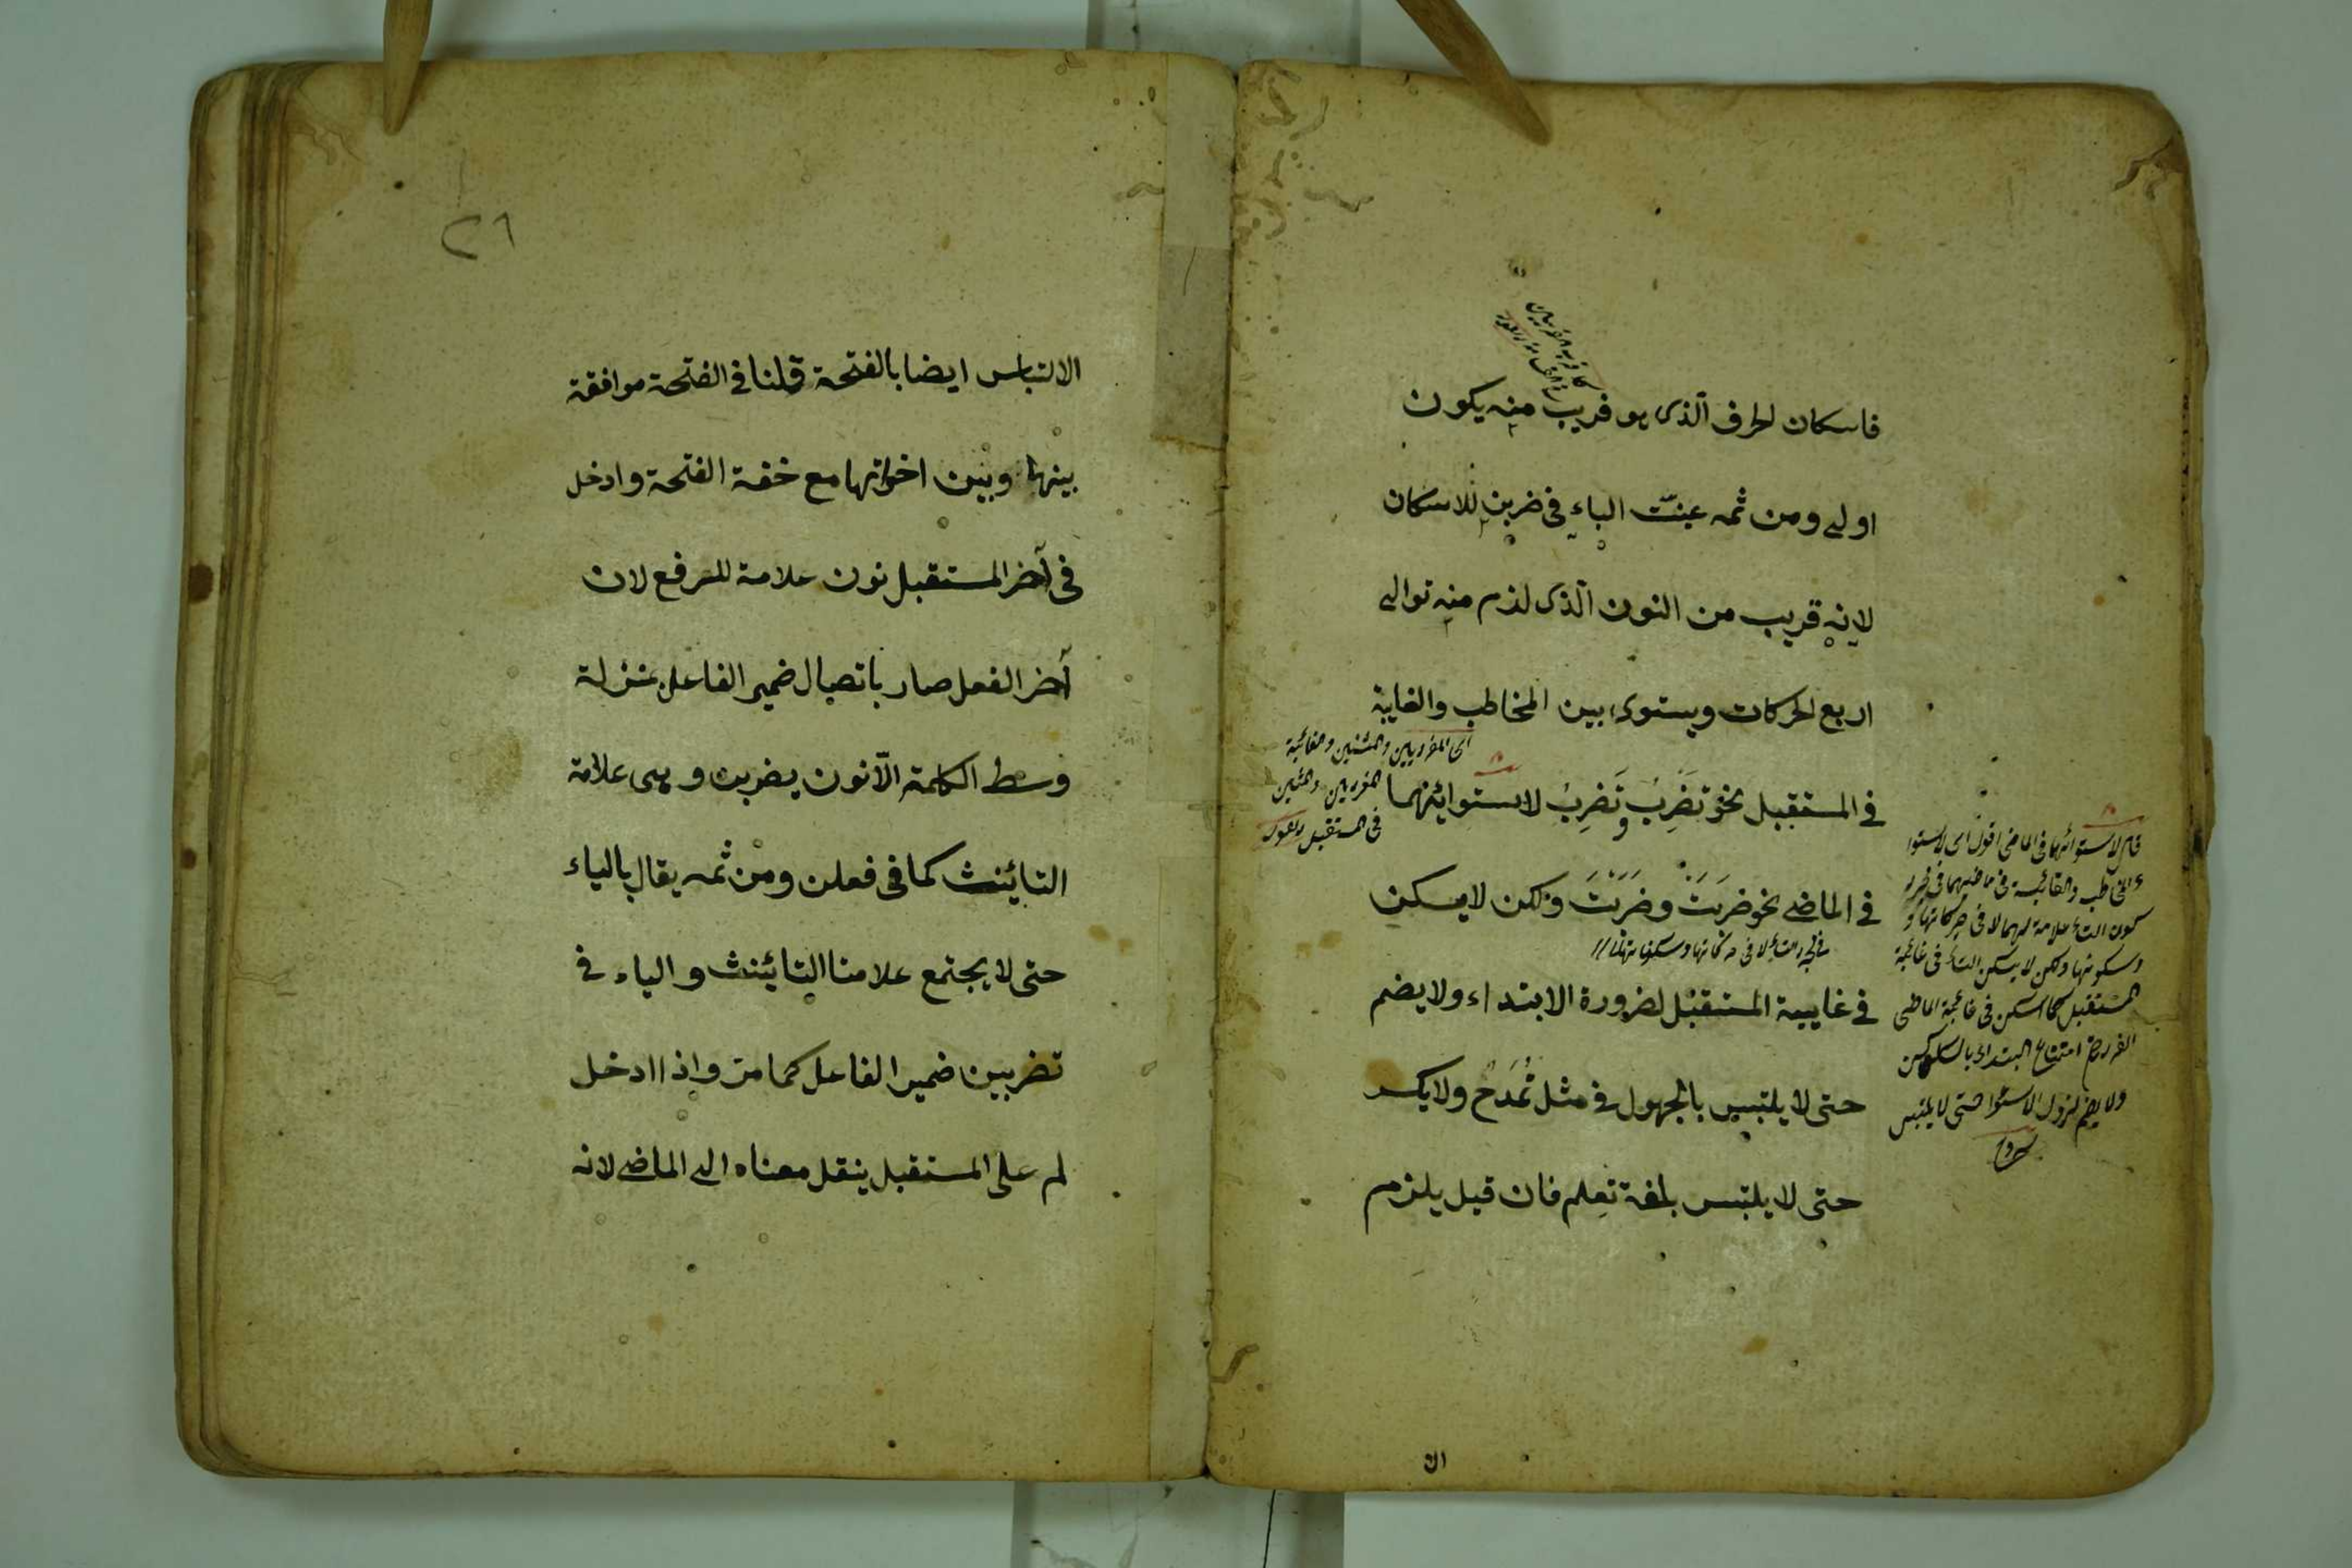 فاسكان الحرف الذى هو قريب منه يكون
اولى ومن ثمه عينت الباء فى ضربن للاسكان
لانه قريب من النون الذى لزم منه توالى
اربع الحركات ويستوى بين المخاطب والغايبة
اى المفردين والمثنيين والغائبة
المفردين والمثنيين
فى المستقبل
فى المستقبل نحو تَضْرِبُ و تَضْرِبُ لاستوائهما
فى الماضى نحو ضَرَبَتْ وضَرَبْتَ ولكن لا يسكن
فى غايبة المستقبل لضرورة الابتداء ولا يضم
حتى لا يلتبس بالمجهول فى مثل تُمْدَحُ ولا يكسر
حتى لا يلتبس بلغة تِعلم فان قيل يلزم
لاستوائهما فى الماضى اقول اى لاستوا
ء المخاطب والغائبة فى ماضيهما فى مجرد
كون التاء علامة لهما لا فى حركاتها و
وسكونها ولكن لا يسكن التاء فى غائبة
المستقبل كما اسكن فى غائبة الماضى
امتناع ابتداء بالسكون
ولا يضم حتى لا يلتبس
الا
٢٦
الالتباس ايضا بالفتحة قلنا فى الفتحة موافقة
بينها وبين اخواتها مع خفة الفتحة وادخل
فى آخر المستقبل نون علامة للرفع لان
آخر الفعل صار باتصال ضمير الفاعل بمنزلة
وسط الكلمة الّا نون يضربن وهى علامة
التأنيث كما فى فعلن ومن ثمه يقال بالياء
حتى لا يجتمع علامتا التأنيث والياء فى
تضربين ضمير الفاعل كما مر واذا ادخل
لم على المستقبل ينقل معناه الى الماضى لانه